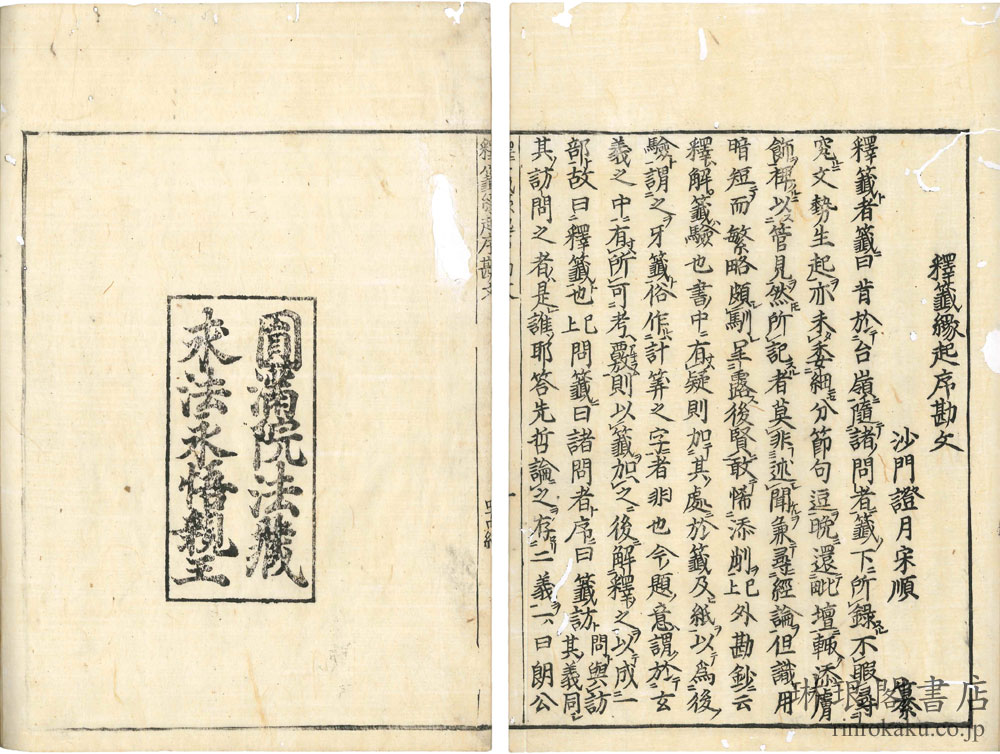 釋籤緣起序勘文
沙門證月宋順
釋籤者籤曰昔於台嶺隨諸問者籤下所錄不暇尋
究文勢生起亦未委細分節句逗晚還毗壇輙添膚
飾裨以管見然所記者莫非述聞兼尋經論但識用
暗短而繁略頗馴呈露後賢敢悕添削已上外勘鈔云
釋解籤驗也書中有疑則加其處於籤及紙以為後
驗謂之牙籤俗作計筭之字者非也今題意謂於玄
義之中有所可考覈則以籤加之後解釋之以成一
部故曰釋籤也已上問籤曰諸問者序曰籤訪問與訪其義同
其訪問之者是誰耶答先哲論之存二義一曰朗公
釋籤緣起序勘文
圓滿院法藏
永法永悟親王
琳琅閣書店
rinrokaku.co.jp